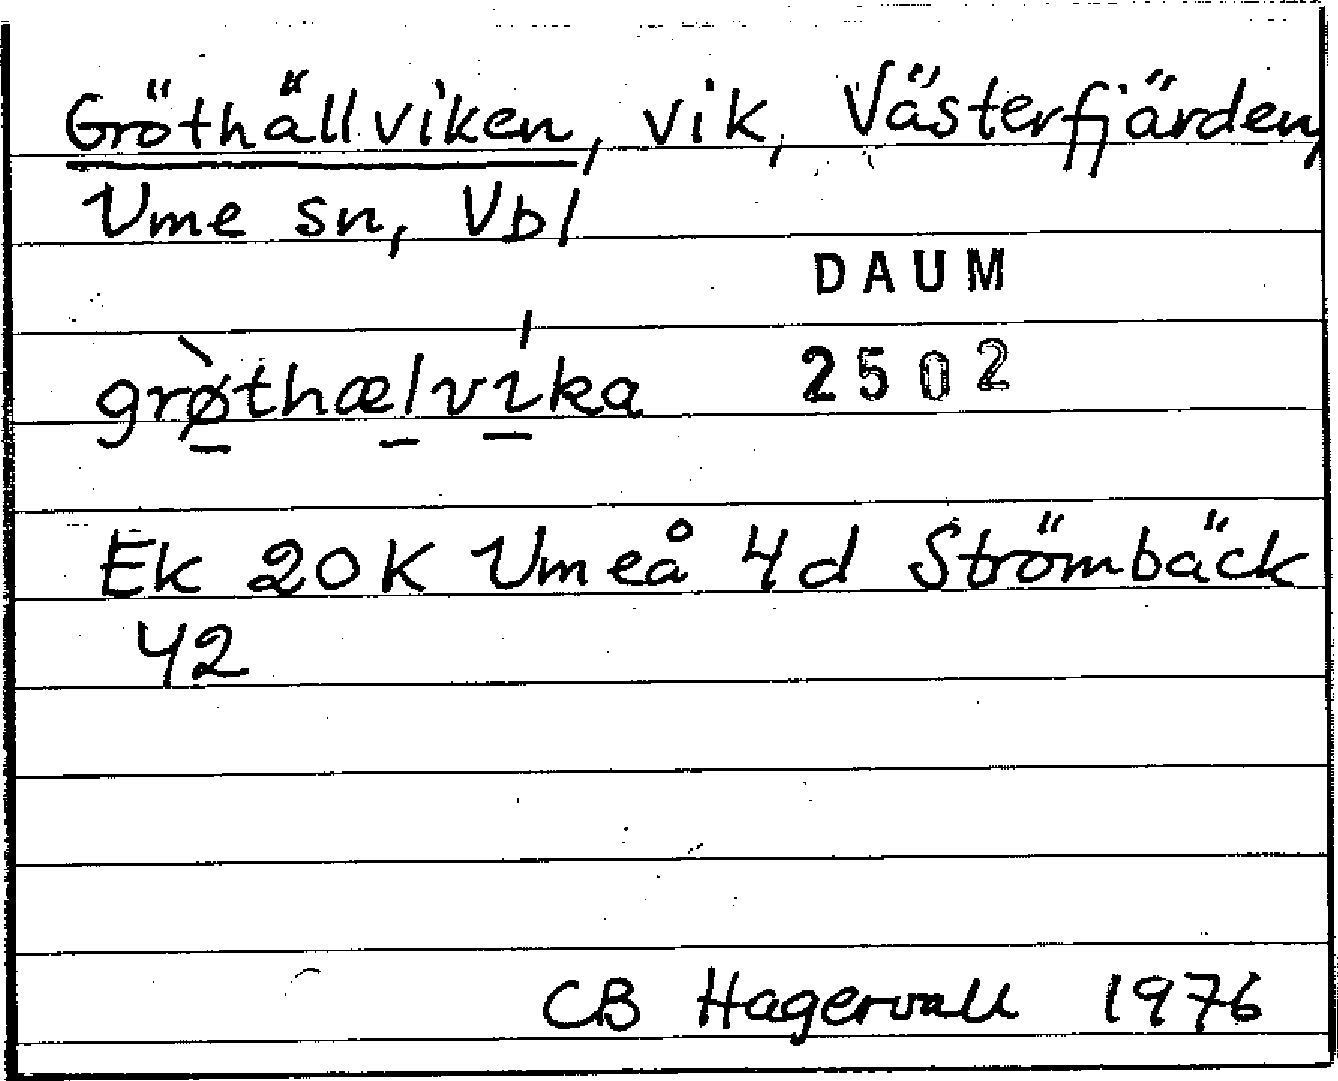 Gröthällviken, vik, Västerfjärden,
Ume sn, Vbl
DAUM
2502
grø̀thælvíka
Ek 20K Umeå 4d Strömbäck
42
CB Hagervall 1976